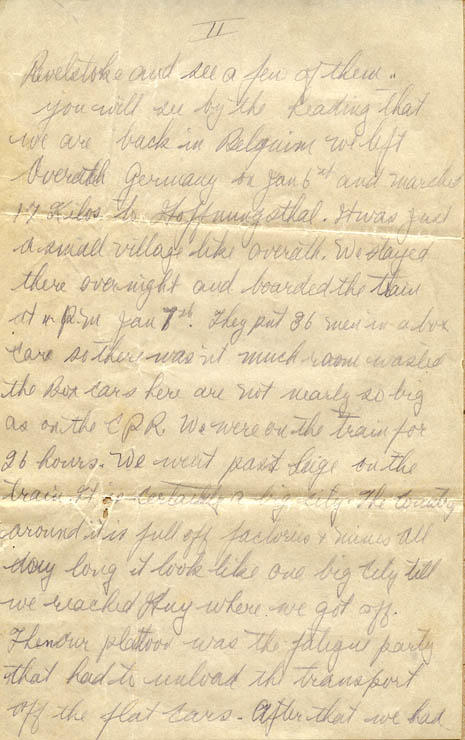 II
Revelstoke and see a few of them.
you will see by the heading that
we are back in Belguim we left
Overath Germany on Jan 6th and marched
17 Kilos to Hoffnungsthal. It was just
a small village like overath. We stayed
there overnight and boarded the train
at P.M Jan 7th. They put 36 men in a box
care so there was'nt much room wasted
the Box cars here are not nearly so big
as on the C.P.R. We were on the train for
26 hours. We went past Leige on the
train It is certainly a big city. The country
around it is full off factories & mines all
day long it look like one big City till
we reached Huy where we got off.
Then our platoon was the fatigue party
that had to unload the transport
off the flat cars. After that we had